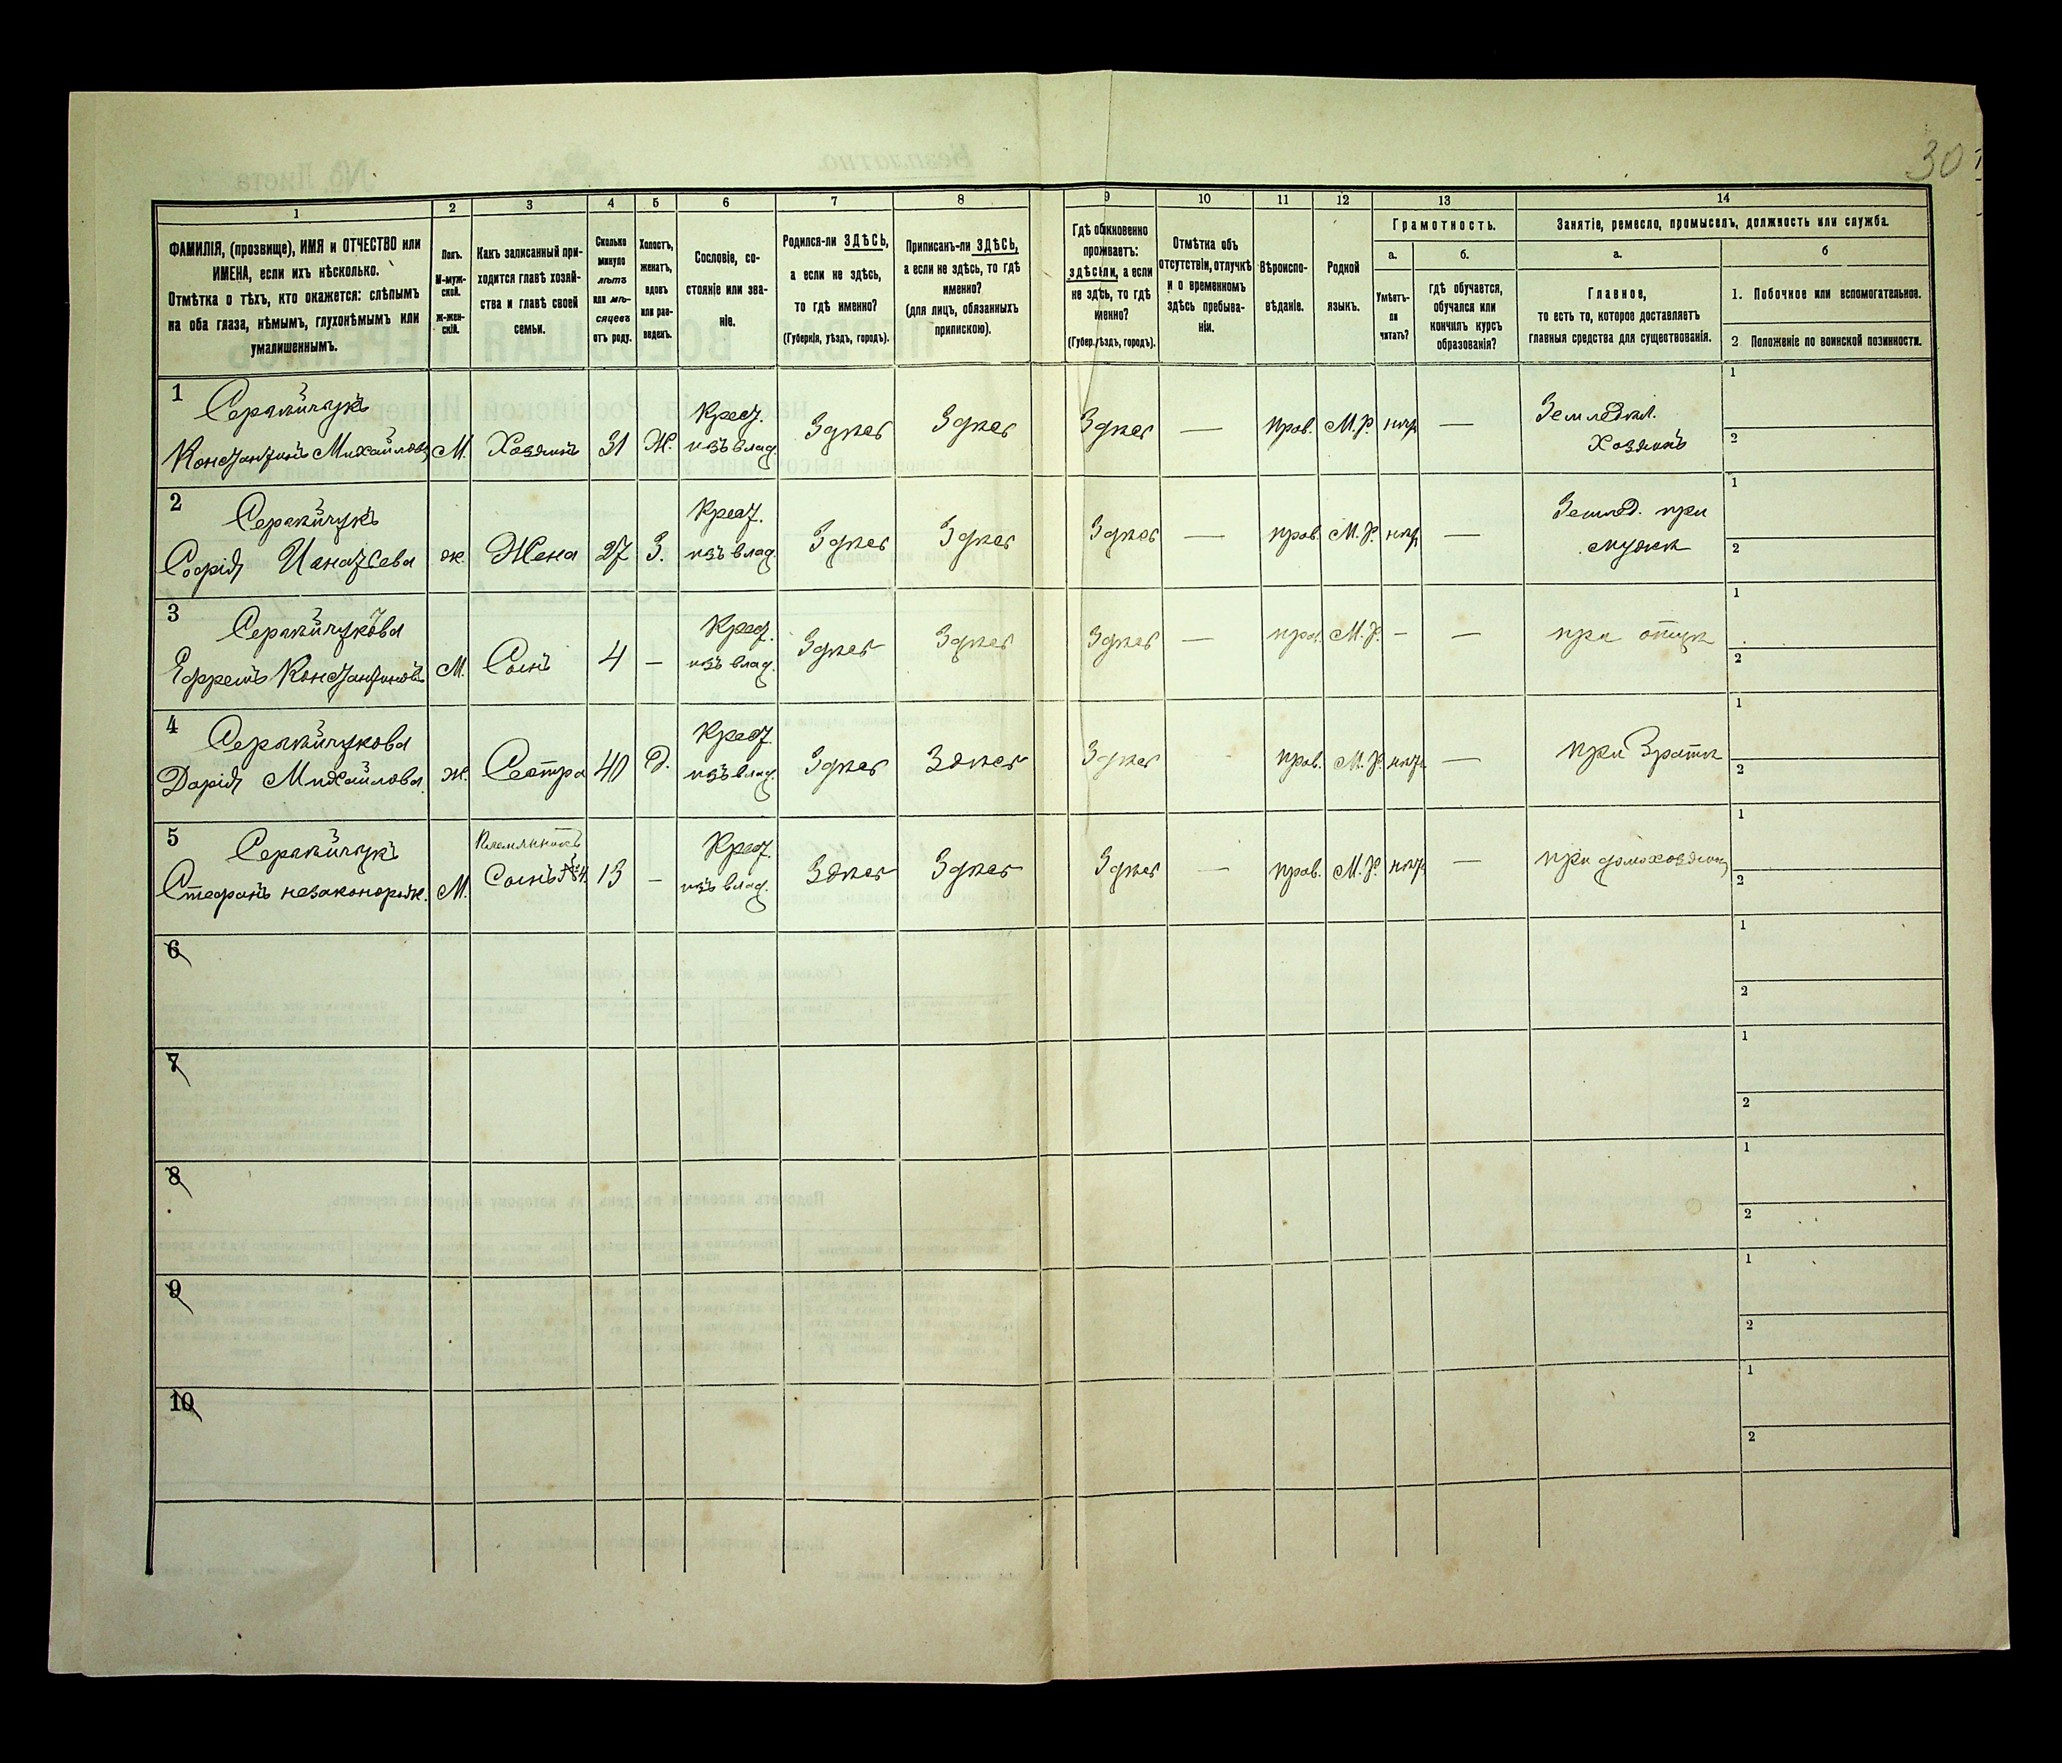 30
1 2 3 4 5 6 7 8 9 10 11 12 13 14
ФАМИЛІЯ, (прозвище), ИМЯ и ОТЧЕСТВО или
ИМЕНА, если ихъ нѣсколько.
Отмѣтка о тѣхъ, кто окажется: слѣпымъ
на оба глаза, нѣмымъ, глухонѣмымъ или
умалишеннымъ.
Полъ.
М-муж-
ской.
Ж-жен-
скій.
Какъ записанный при-
ходится главѣ хозяй-
ства и главѣ своей
семьи.
Сколько
минуло
лѣтъ
или мѣ-
сяцевъ
отъ роду.
Холостъ,
женатъ,
вдовъ
или раз-
веденъ.
Сословіе, со-
стояніе или зва-
ніе.
Родился-ли ЗДѢСЬ,
а если не здѣсь,
то гдѣ именно?
(Губернія, уѣздъ, городъ).
Приписанъ-ли ЗДѢСЬ,
а если не здѣсь, то гдѣ
именно?
(для лицъ, обязанныхъ
припискою).
Гдѣ обыкновенно
проживаетъ:
здѣсь-ли, а если
не здѣсь, то гдѣ
именно?
(Губер. уѣздъ, городъ).
Отмѣтка объ
отсутствіи, отлучкѣ
и о временномъ
здѣсь пребыва-
ніи.
Вѣроиспо-
вѣданіе.
Родной
языкъ.
Грамотность.
а.
Умѣетъ-
ли
читать?
б.
гдѣ обучается,
обучался или
кончилъ курсъ
образованія?
Занятіе, ремесло, промыселъ, должность или служба.
а.
Главное,
то есть то, которое доставляетъ
главныя средства для существованія.
б
1. Побочное или вспомогательное.
2 Положеніе по воинской повинности.
1
Константинъ Михайловъ М. Хозяинъ 31 Ж. Крест. изъ влад. Здѣсь Здѣсь Здѣсь — прав. М.Р. нѣтъ — Земледѣл.
Хозяинъ
1
2
2
Софія Игнатьева ж. Жена 27 З. Крест. изъ влад. Здѣсь Здѣсь Здѣсь — прав. М.Р. нѣтъ — Землед. при
мужѣ
1
2
3
Ефремъ Константиновъ М. Сынъ 4 — Крест. изъ влад. Здѣсь Здѣсь Здѣсь — прав. М.Р. — — при отцѣ
1
2
4
Дарія Михайлова ж. Сестра 40 Д. Крест. изъ влад. Здѣсь Здѣсь Здѣсь прав. М.Р. нѣтъ — при братѣ
1
2
5
Племянникъ
Стефанъ незаконорож. М. Сынъ 13 — Крест. изъ влад. Здѣсь Здѣсь Здѣсь — прав. М.Р. нѣтъ — при домохозяинѣ
1
2
6
1
2
7
1
2
8
1
2
9
1
2
10
1
2